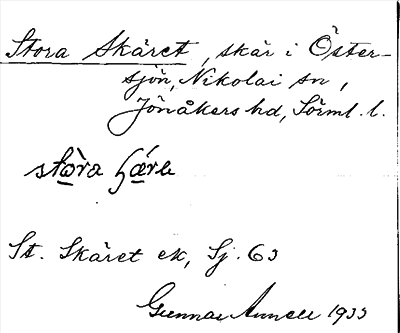 Stora Skäret, skär i Öster-
sjön, Nikolai sn,
Jönåkers hd, Sörml. l.
stora
St. Skäret ek, Sj. 63
Gunnar Annell 1933